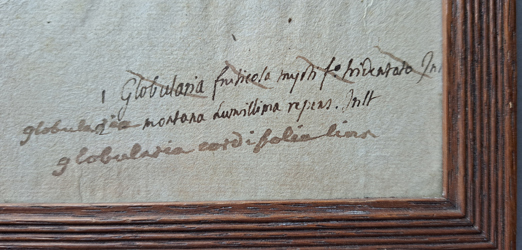 1 Globularia fruticosa myrti fo tridentato Inst
globularia montana humillima repens. Instt
globularia cordifolia linn